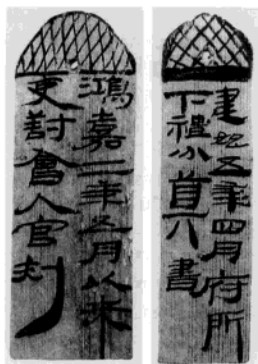 建五年四月府所
下禮分書
鴻嘉二年五月以來
吏對會入官刺